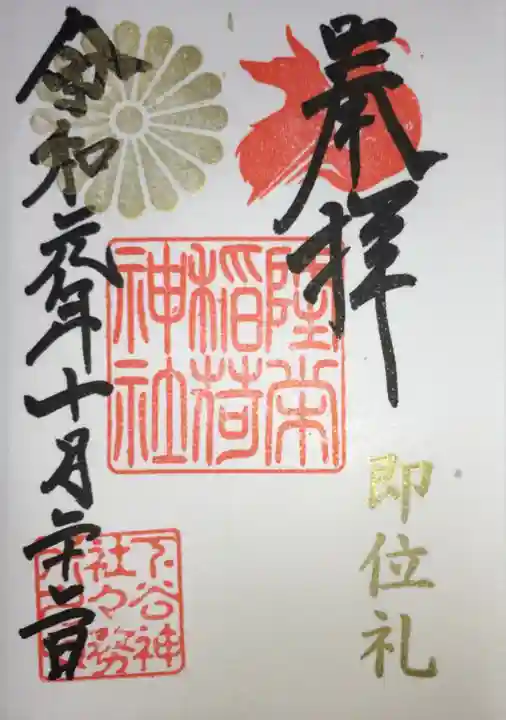 奉拝
即位礼
隆栄
稲荷
神社
下谷神
社々務
令和元年十月二十二日